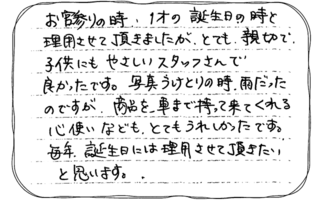 お宮参りの時、1才の誕生日の時と
理用させて頂きましたが、とても、親切で
子供にも やさしいスタッフさんで
良かったです。写真うけとりの時、雨だった
のですが 商品を、車まで持って来てくれる
心使いなども、とてもうれしかったです。
毎年、誕生日には理用させて頂きたい
と思います。